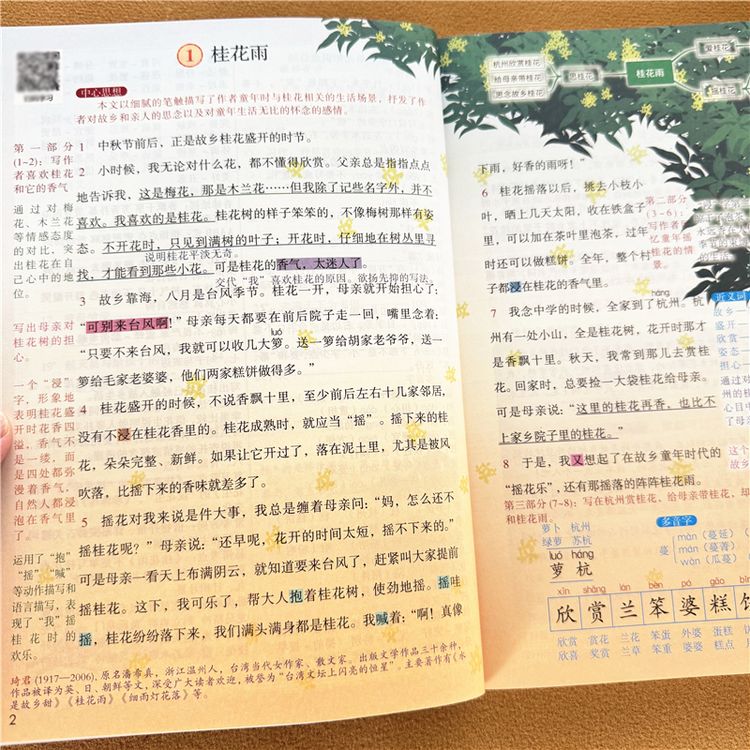 1 桂花雨
中心思想
本文以细腻的笔触描写了作者童年时与桂花相关的生活场景，抒发了作
者对故乡和亲人的思念以及对童年生活无比的怀念的感情。
第一部分
(1~2)：写作
者喜欢桂花
和它的香气
通过对梅
花、木兰花
等情感态度
的对比，突
出桂花在自
己心中的地
位。
写出母亲对
桂花树的担
心。
一个“浸”
字，形象地
表明桂花盛
开时花香四
溢，香气不
是一缕，而
是四处都弥
漫着香气，
自然人都浸
泡在香气里
了。
运用了“抱”
“摇”“喊”
等动作描写和
语言描写，表
现了“我”摇
桂花时的
欢乐。
1 中秋节前后，正是故乡桂花盛开的时节。
2 小时候，我无论对什么花，都不懂得欣赏。父亲总是指指点点
地告诉我，这是梅花，那是木兰花……但我除了记些名字外，并不
喜欢。我喜欢的是桂花。桂花树的样子笨笨的，不像梅树那样有姿
态。不开花时，只见到满树的叶子；开花时，仔细地在树丛里寻
说明桂花平淡无奇。
找，才能看到那些小花。可是桂花的香气，太迷人了。
交代“我”喜欢桂花的原因。欲扬先抑的写法。
3 故乡靠海，八月是台风季节。桂花一开，母亲就开始担心了：
“可别来台风啊！”母亲每天都要在前后院子走一回，嘴里念着：
luó
“只要不来台风，我就可以收几大箩。送一箩给胡家老爷爷，送一
箩给毛家老婆婆，他们两家糕饼做得多。”
4 桂花盛开的时候，不说香飘十里，至少前后左右十几家邻居，
没有不浸在桂花香里的。桂花成熟时，就应当“摇”。摇下来的桂
花，朵朵完整、新鲜。如果让它开过了，落在泥土里，尤其是被风
吹落，比摇下来的香味就差多了。
5 摇花对我来说是件大事，我总是缠着母亲问：“妈，怎么还不
摇桂花呢？”母亲说：“还早呢，花开的时间太短，摇不下来的。”
可是母亲一看天上布满阴云，就知道要来台风了，赶紧叫大家提前
摇桂花。这下，我可乐了，帮大人抱着桂花树，使劲地摇。摇哇
摇，桂花纷纷落下来，我们满头满身都是桂花。我喊着：“啊！真像
琦君(1917—2006)，原名潘希真，浙江温州人，台湾当代女作家、散文家。出版文学作品三十余种，
作品被译为英、日、朝鲜等文，深受广大读者欢迎，被誉为“台湾文坛上闪亮的恒星”，主要著作有《水
是故乡甜》《桂花雨》《细雨灯花落》等。
2
杭州欣赏桂花
给母亲带桂花
思念故乡桂花
思桂花
桂花雨
爱桂花
摇桂花
下雨，好香的雨呀！”
6 桂花摇落以后，挑去小枝小
叶，晒上几天太阳，收在铁盒子
里，可以加在茶叶里泡茶，过年
时还可以做糕饼。全年，整个村
子都浸在桂花的香气里。
第二部分
(3~6)：
写作者回
忆童年摇
桂花的情
景。
7 我念中学的时候，全家到了杭州。杭
州有一处小山，全是桂花树，花开时那才
是香飘十里。秋天，我常到那儿去赏桂
花。回家时，总要捡一大袋桂花给母亲。
可是母亲说：“这里的桂花再香，也比不
上家乡院子里的桂花。”
8 于是，我又想起了在故乡童年时代的
“摇花乐”，还有那摇落的阵阵桂花雨。
第三部分(7~8)：写在杭州赏桂花、给母亲带桂花，却
和桂花雨。
近义词
多音字
萝卜 杭州
绿萝 苏杭
luó háng
萝 杭
蔓
màn（蔓延）
mán（蔓菁）
wàn（瓜蔓）
xīn shǎng lán bèn pó gāo bǐng
欣 赏 兰 笨 婆 糕 饼
欣赏 赏花 兰花 笨重 外婆 蛋糕
欣喜 奖赏 兰草 笨重 婆婆 糕点